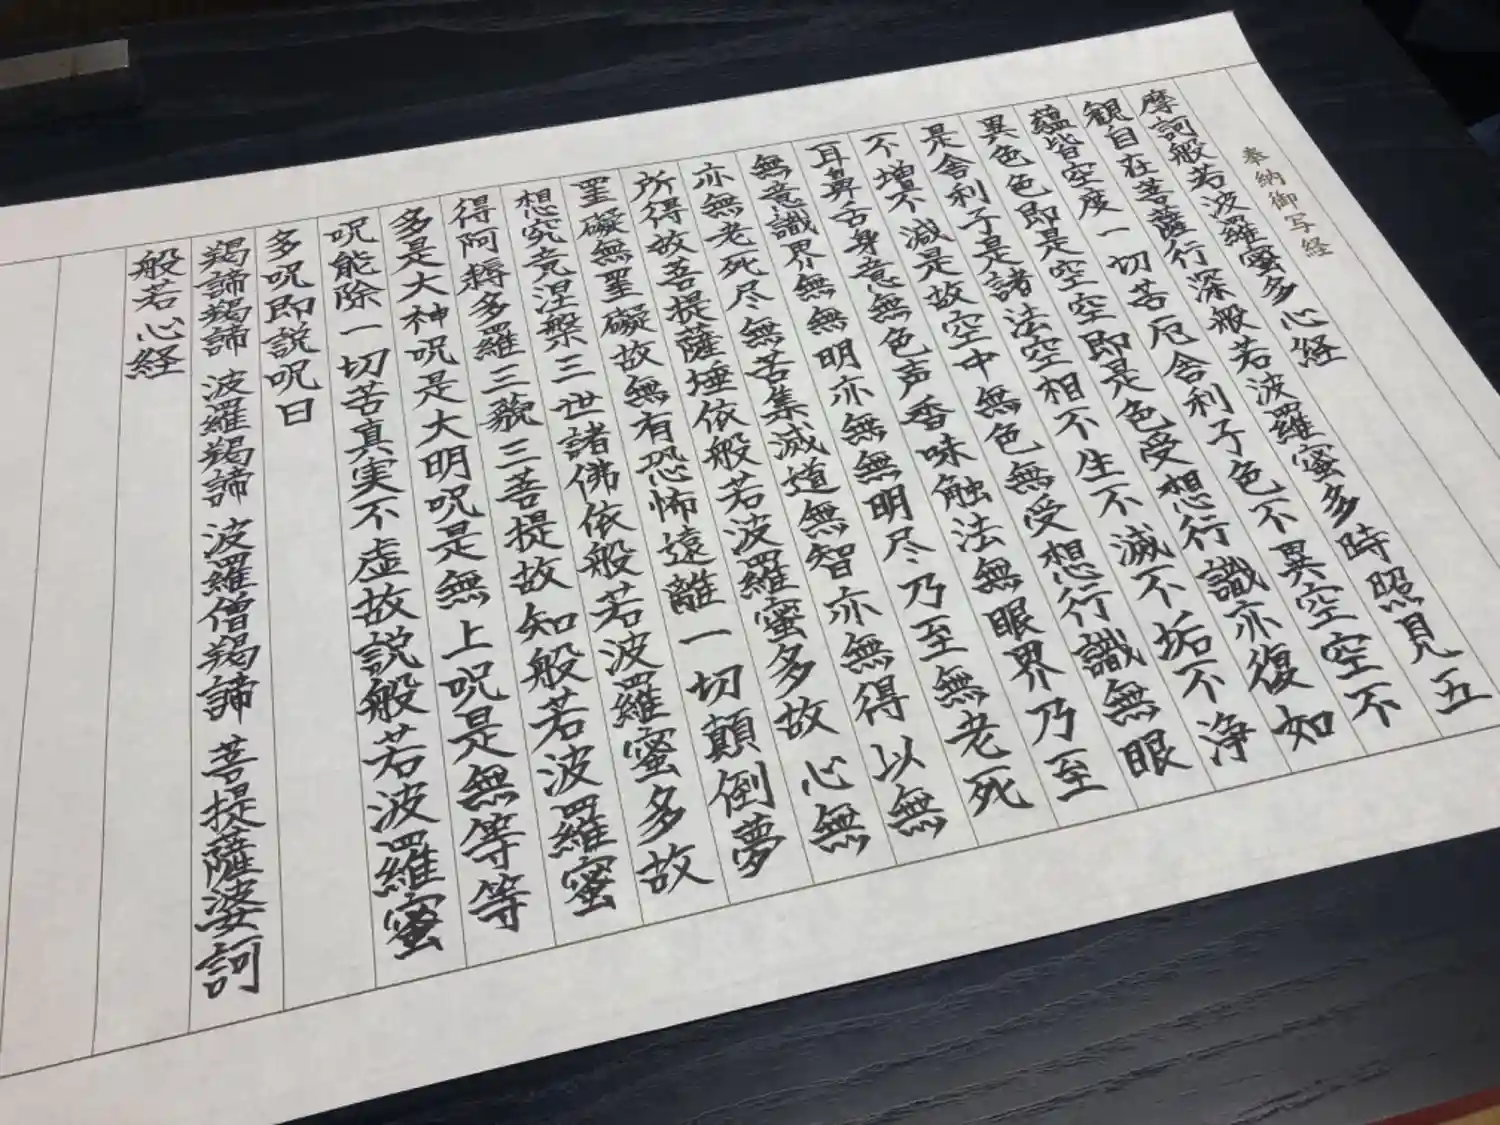 奉納御写経
摩訶般若波羅蜜多心経
観自在菩薩行深般若波羅蜜多時照見五
蘊皆空度一切苦厄舎利子色不異空空不
異色色即是空空即是色受想行識亦復如
是舎利子是諸法空相不生不滅不垢不浄
不増不減是故空中無色無受想行識無眼
耳鼻舌身意無色声香味触法無眼界乃至
無意識界無無明亦無無明尽乃至無老死
亦無老死尽無苦集滅道無智亦無得以無
所得故菩提薩埵依般若波羅蜜多故心無
罣礙無罣礙故無有恐怖遠離一切顛倒夢
想究竟涅槃三世諸佛依般若波羅蜜多故
得阿耨多羅三藐三菩提故知般若波羅蜜
多是大神呪是大明呪是無上呪是無等等
呪能除一切苦真実不虚故説般若波羅蜜
多呪即説呪曰
羯諦羯諦 波羅羯諦 波羅僧羯諦 菩提薩婆訶
般若心経